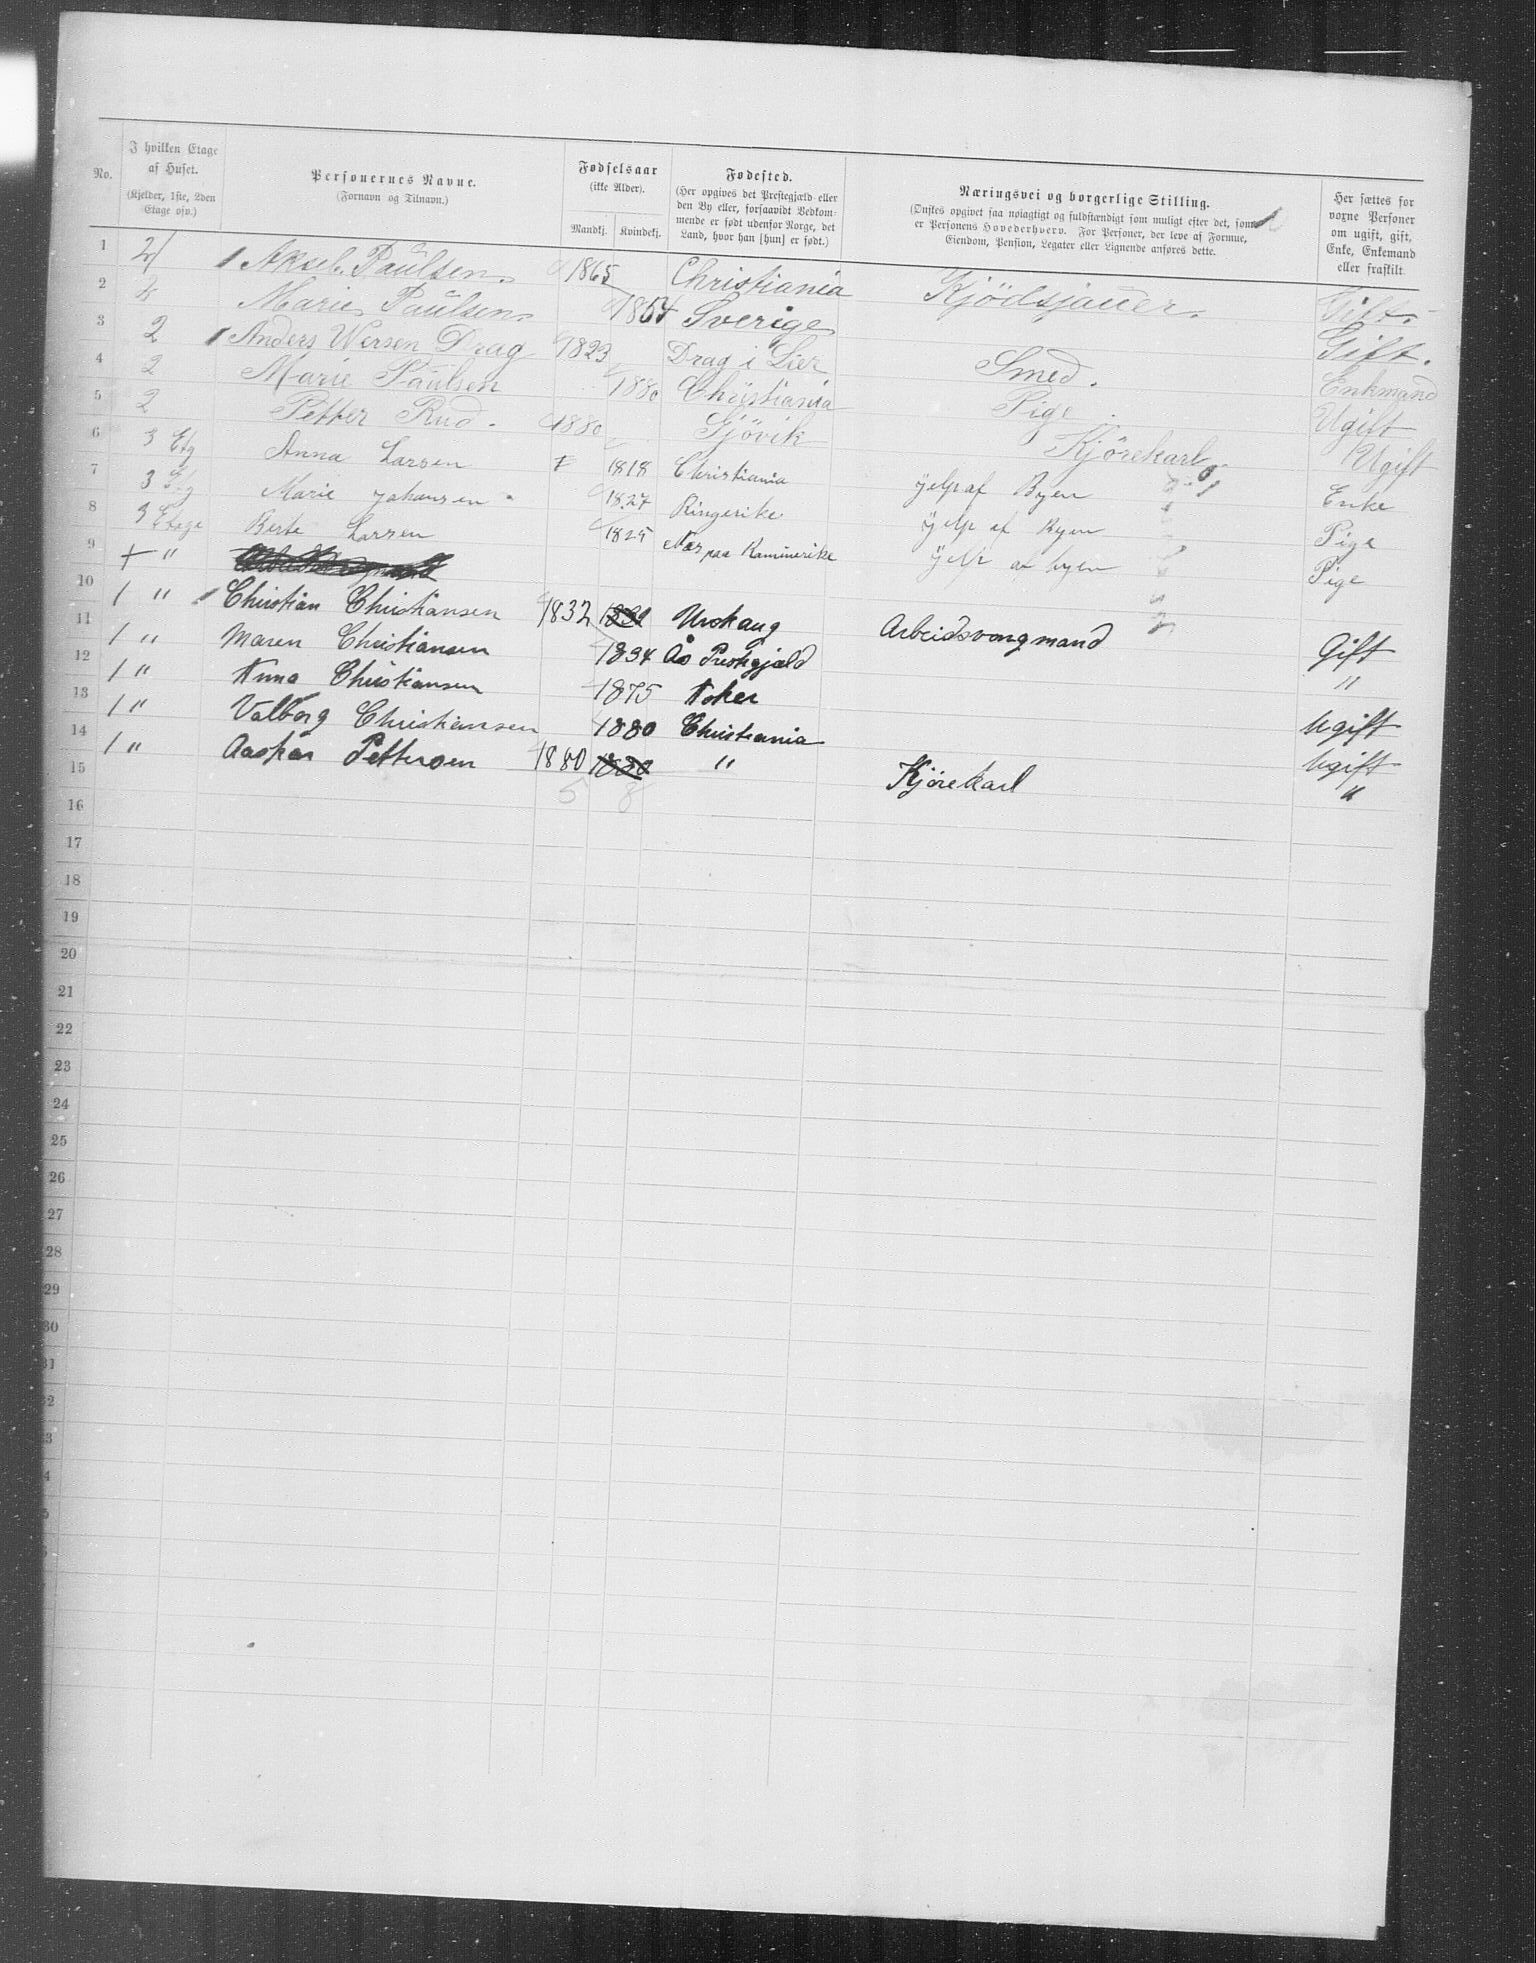 No.
I hvilken Etage af Huset.
(Kjelder, 1ste, 2den Etage osv.)
Personernes Navne.
(Fornavn og Tilnavn.)
Fødselsaar
(ikke Alder).
Mandkj. Kvindekj.
Fødested.
(Her opgives det Prestegjæld eller
den By eller, forsaavidt Vedkom-
mende er født udenfor Norge, det
Land, hvor han [hun] er født.)
Næringsvei og borgerlige Stilling.
(Ønskes opgivet saa nøiagtigt og fuldstændigt som muligt efter det, som
er Personens Hovederhverv. For Personer, der leve af Formue,
Eiendom, Pension, Legater eller Lignende anføres dette.
Her sættes for
voxne Personer
om ugift, gift,
Enke, Enkemand
eller fraskilt
1 2 Aksel Paulsen. 1865 Christiania Kjödsjauer. Gift.
2 2 Marie Paulsen. 1864 Sverige Gift.
3 2 Anders Wersen Drag 1823 Drag i Lier Smed. Enkmand
4 2 Marie Paulsen 1880 Christiania Pige Ugift
5 2 Petter Rud. 1880 Gjövik Kjörekarl. Ugift
6 3 Etg Anna Larsen 1818 Christiania Hjelp af Byen Enke
7 3 Etg Marie Johansen 1827 Ringerike Hjelp af Byen Pige
8 3 Etage Berte Larsen 1825 Næs paa Rammerike Hjelp af byen Pige
9 "
10 1 " Christian Christiansen 1832 Urskaug Arbeidsvongmand Gift
11 1 " Maren Christiansen 1834 Ås Prestegjæld "
12 1 " Anna Christiansen 1875 Aker Ugift
13 1 " Valborg Christiansen 1880 Christiania Ugift
14 1 " Aaskar Pettersen 1880 " Kjörekarl "
15 5 8
16
17
18
19
20
21
22
23
24
25
26
27
28
29
30
31
32